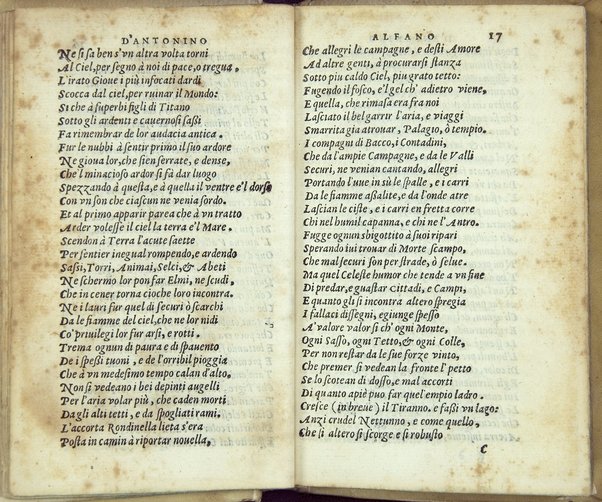 D'ANTONINO
Ne si sa ben s'vn altra volta torni
Al Ciel, per segno à noi di pace, o tregua.
L'irato Gioue i più infocati dardi
Scocca dal ciel, per ruinar il Mondo:
Si che à superbi figli di Titano
Sotto gli ardenti e cauernosi sassi
Fa rimembrar de lor audacia antica.
Fur le nubbi à sentir primo il suo ardore
Ne gioua lor, che sien serrate, e dense,
Che'l minacioso ardor si fà dar luogo
Spezzando à questa, e à quella il ventre e'l dorso
Con vn son che ciascun ne venia sordo.
Et al primo apparir parea che à vn tratto
Arder volesse il ciel la terra e'l Mare.
Scendon à Terra l'acute saette
Per sentier inegual rompendo, e ardendo
Sassi, Torri, Animai, Selci, & Abeti
Ne schermo lor pon far Elmi, ne scudi,
Che in cener torna cioche loro incontra.
Ne i lauri fur quel dì securi ò scarchi
Da le fiamme del ciel, che ne lor nidi
Co' priuilegi lor fur arsi, e rotti.
Trema ognun di paura e di spauento
De i spessi tuoni, e de l'orribil pioggia
Che à vn medesimo tempo calan d'alto.
Non si vedeano i bei depinti augelli
Per l'aria volar più, che caden morti
Dagli alti tetti, e da spogliati rami.
L'accorta Rondinella lieta s'era
Posta in camin à riportar nouella,
ALFANO 17
Che allegri le campagne, e desti Amore
Ad altre genti, à procurarsi stanza
Sotto piu caldo Ciel, piu grato tetto:
Fugendo il fosco, e'l gel ch' adietro viene,
E quella, che rimasa era fra noi
Lasciato il bel garrir l'aria, e viaggi
Smarrita gia atrouar, Palagio, ò tempio.
I compagni di Bacco, i Contadini,
Che da l'ampie Campagne, e da le Valli
Securi, ne venian cantando, allegri
Portando l'uue in sù le spalle, e i carri
Da le fiamme assalite, e da l'onde atre
Lascian le ciste, e i carri en fretta corre
Chi nel humil capanna, e chi ne l'Antro.
Fugge ognun sbigottito à suoi ripari
Sperando iui trouar di Morte scampo,
Che mal securi son per strade, ò selue.
Ma quel Celeste humor che tende à vn fine
Di predar, e guastar Cittadi, e Campi,
E quanto gli si incontra altero spregia
I fallaci disegni, e giunge spesso
A'valore valor sì ch' ogni Monte,
Ogni Sasso, ogni Tetto, & ogni Colle,
Per non restar da le sue forze vinto,
Che premer si vedean la fronte l' petto
Se lo scotean di dosso, e mal accorti
Di quanto apiè puo far quel'empio ladro.
Cresce (in breue) il Tiranno. e fassi vn lago:
Anzi crudel Nettunno, e come quello,
Che sì altero si scorge e sì robusto
C